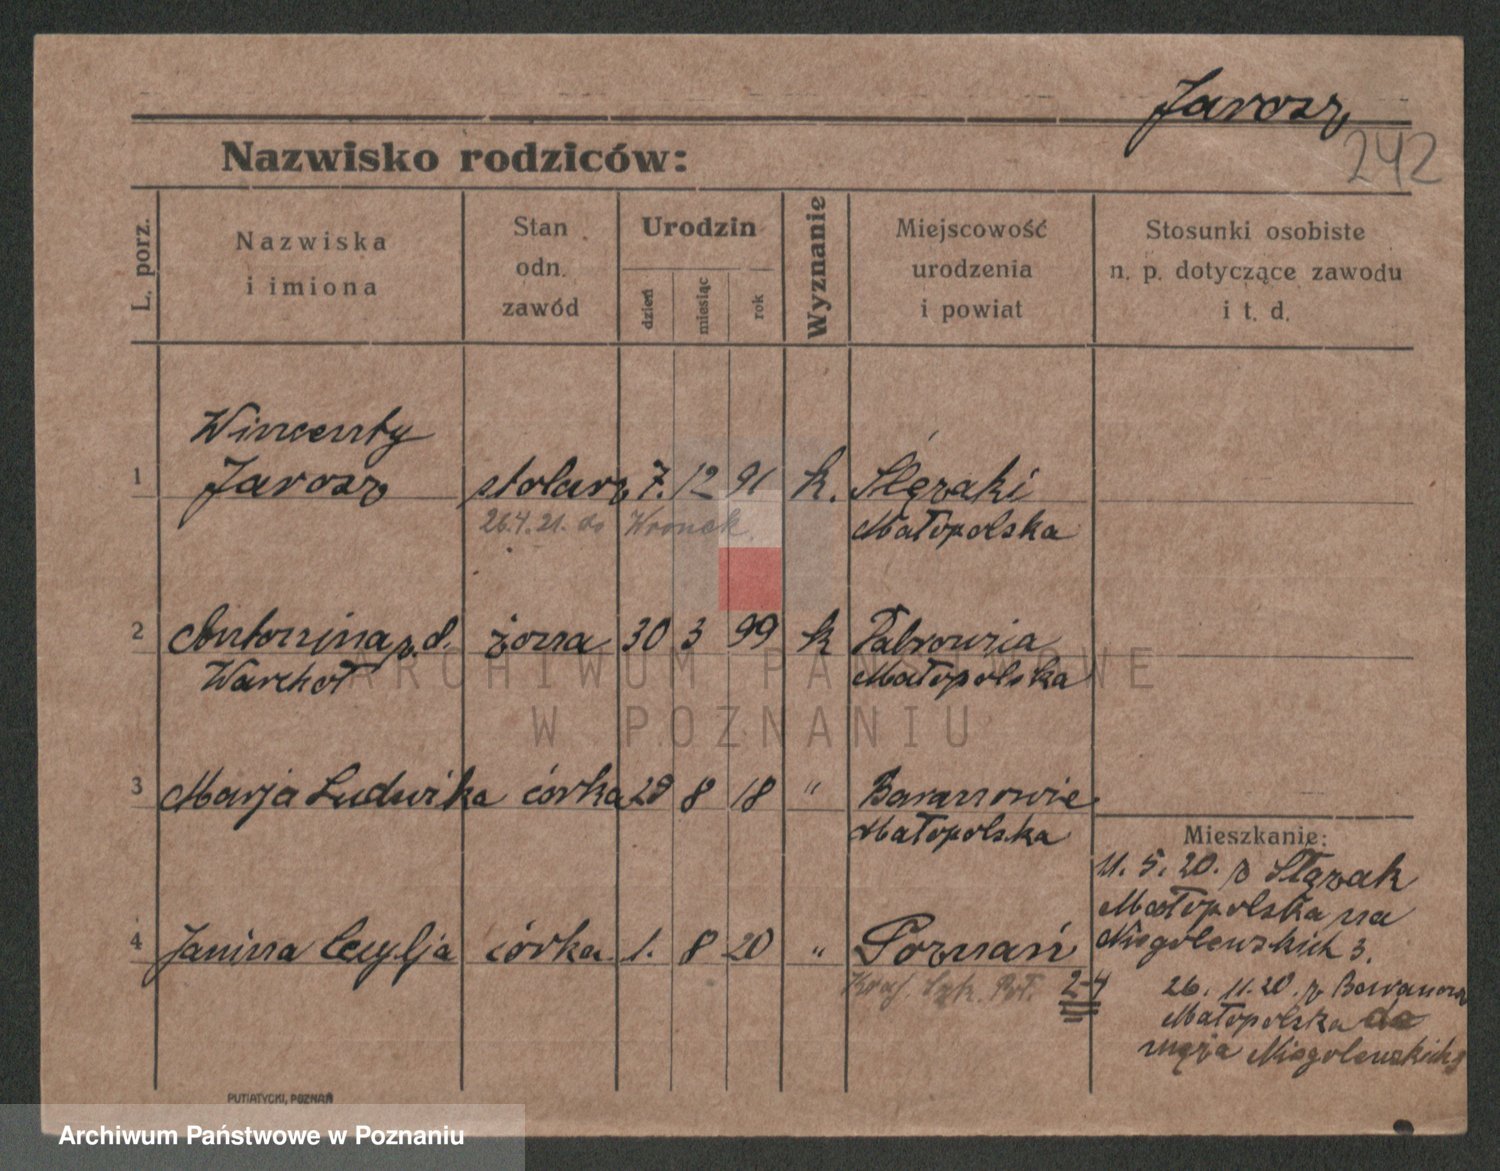 Jarosz
242
Nazwisko rodziców:
L. porz.
Nazwiska
i imiona
Stan
odn.
zawód
Urodzin
dzień
miesiąc
rok
Wyznanie
Miejscowość
urodzenia
i powiat
Stosunki osobiste
n. p. dotyczące zawodu
i t. d.
Wincenty
1 Jarosz stolarz 7. 12 91 k. Stęzaki
26.4.21. do Wronek. Małopolska
2 Antonina z. d. żona 30 3 99 k
Warchoł Małopolska
3 Marja Ludwika córka 29 8 18 " Baranowie
Małopolska
4 Janina Cecylja córka 1. 8 20 " Poznań
2-4
Mieszkanie:
11. 5. 20. z Stęzak
Małopolska na
Niegolewskich 3.
26. 11. 20. z
Małopolska do
męża Niegolewskich 3
PUTIATYCKI, POZNAŃ
ARCHIWUM PAŃSTWOWE
W POZNANIU
Archiwum Państwowe w Poznaniu